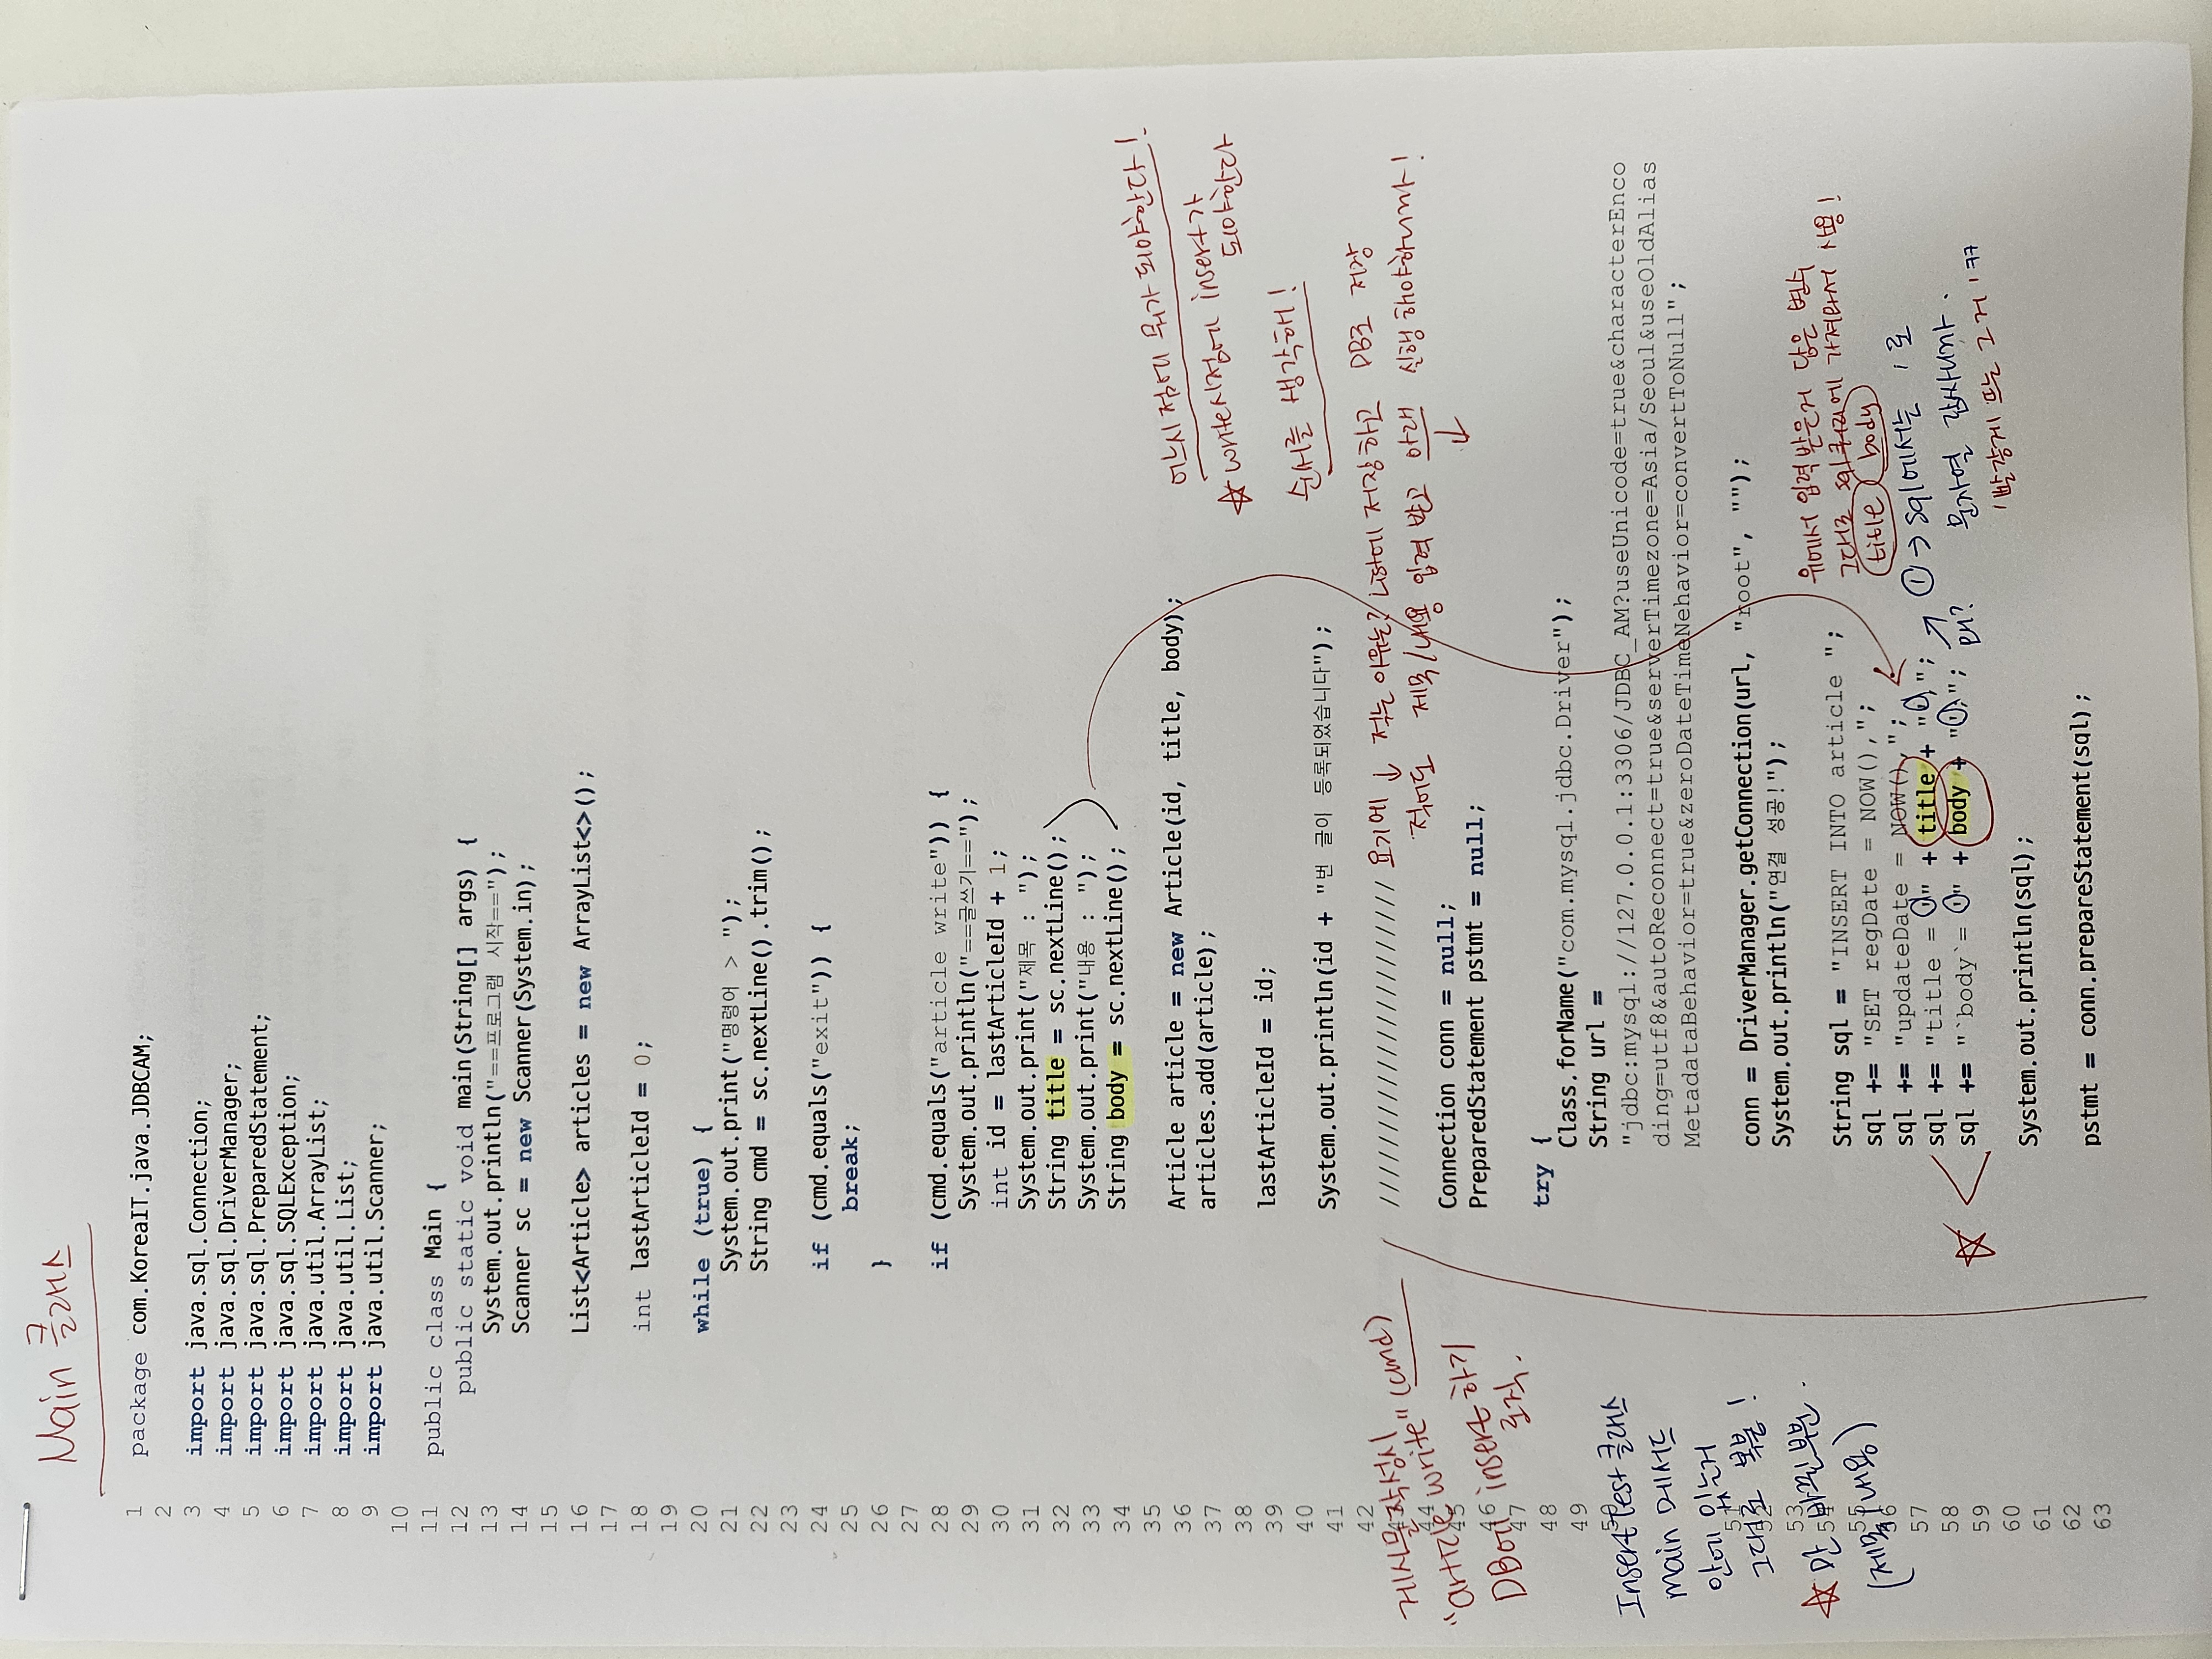 Main 클래스
1 package com.KoreaIT.java.JDBCAM;
2
3 import java.sql.Connection;
4 import java.sql.DriverManager;
5 import java.sql.PreparedStatement;
6 import java.sql.SQLException;
7 import java.util.ArrayList;
8 import java.util.List;
9 import java.util.Scanner;
10
11 public class Main {
12 public static void main(String[] args) {
13 System.out.println("==프로그램 시작==");
14 Scanner sc = new Scanner(System.in);
15
16 List<Article> articles = new ArrayList<>();
17
18 int lastArticleId = 0;
19
20 while (true) {
21 System.out.print("명령어 > ");
22 String cmd = sc.nextLine().trim();
23
24 if (cmd.equals("exit")) {
25 break;
26 }
27
28 if (cmd.equals("article write")) {
29 System.out.println("==글쓰기==");
30 int id = lastArticleId + 1;
31 System.out.print("제목 : ");
32 String title = sc.nextLine();
33 System.out.print("내용 : ");
34 String body = sc.nextLine();
35
36 Article article = new Article(id, title, body);
37 articles.add(article);
38
39 lastArticleId = id;
40
41 System.out.println(id + "번 글이 등록되었습니다");
42
어느시점에 뭐가 되야한다!
☆ write시점에 insert가
되야한다
순서를 생각해!
//////////////////////// 요기에 ↓ 적는 이유는? 나중에 저장하고 DB로 저장
적어도 제목/내용 입력 받고 아래 실행 해야하니까!
↓
게시물 작성시
"article write" (cmd)
DB에 insert 하기
로직.
44
45 Connection conn = null;
46 PreparedStatement pstmt = null;
47
48 try {
49 Class.forName("com.mysql.jdbc.Driver");
String url =
"jdbc:mysql://127.0.0.1:3306/JDBC_AM?useUnicode=true&characterEnco
ding=utf8&autoReconnect=true&serverTimezone=Asia/Seoul&useOldAlias
MetadataBehavior=true&zeroDateTimeNehavior=convertToNull";
conn = DriverManager.getConnection(url, "root", "");
System.out.println("연결 성공!");
53
String sql = "INSERT INTO article ";
55 sql += "SET regDate = NOW(),";
56 sql += "updateDate = NOW(),";
57 sql += "title = '" + title + "',";
58 sql += "`body`= '" + body + "';";
59
60 System.out.println(sql);
61
62 pstmt = conn.prepareStatement(sql);
63
Insert test 클래스
main 메서드
안에 있는거
그대로 복붙!
☆ 만 바뀐부분.
(제목/내용)
위에서 입력받은거 담은 변수
그대로 sql쿼리에 가져와서 사용!
title body
① → sql에서는 ' 로
왜? 문자열 감싸니까.
빨갛게 뜨는 그거